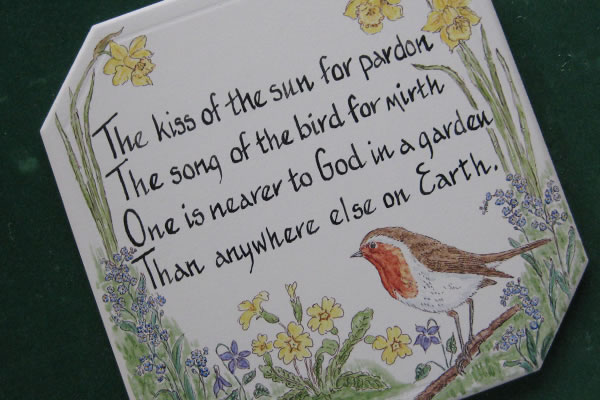 The kiss of the sun for pardon
The song of the bird for mirth
One is nearer to God in a garden
Than anywhere else on Earth.